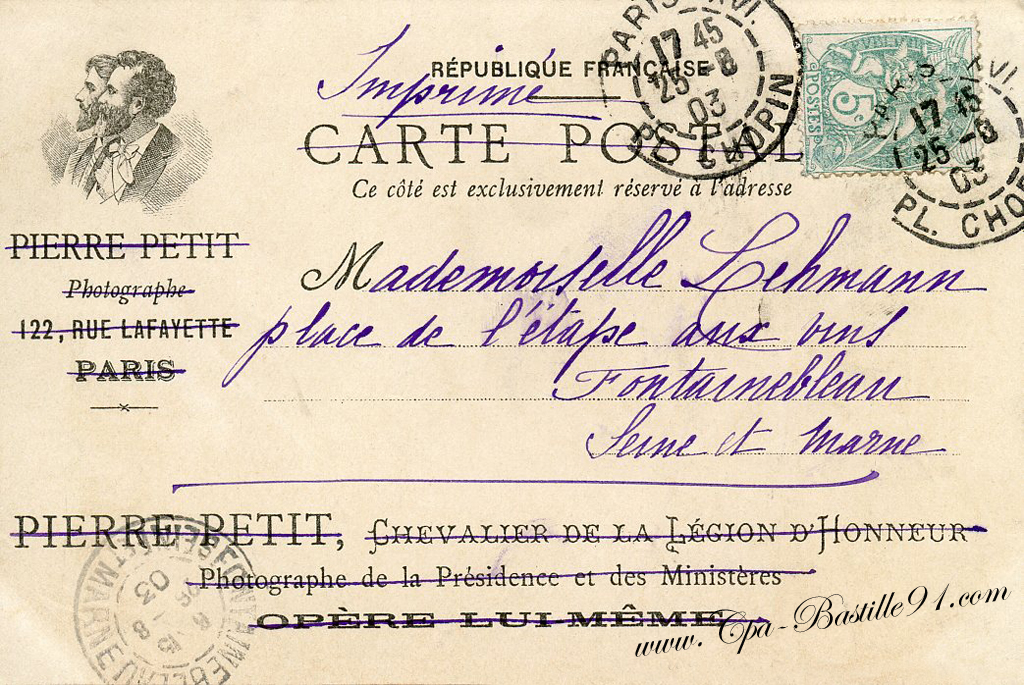 RÉPUBLIQUE FRANÇAISE
Imprimé
CARTE POSTALE
Ce côté est exclusivement réservé à l'adresse
PARIS XVI.
17 45
25 -8
03
PL. CHOPIN
POSTES
5
PARIS XVI.
17 45
25 -8
03
PL. CHOPIN
PIERRE PETIT
Photographe
122, RUE LAFAYETTE
PARIS
Mademoiselle Lehmann
place de l'étape aux vins
Fontainebleau
Seine et Marne
PIERRE PETIT, CHEVALIER DE LA LÉGION D'HONNEUR
Photographe de la Présidence et des Ministères
OPÈRE LUI-MÊME
FONTAINEBLEAU
03
www.Cpa-Bastille91.com